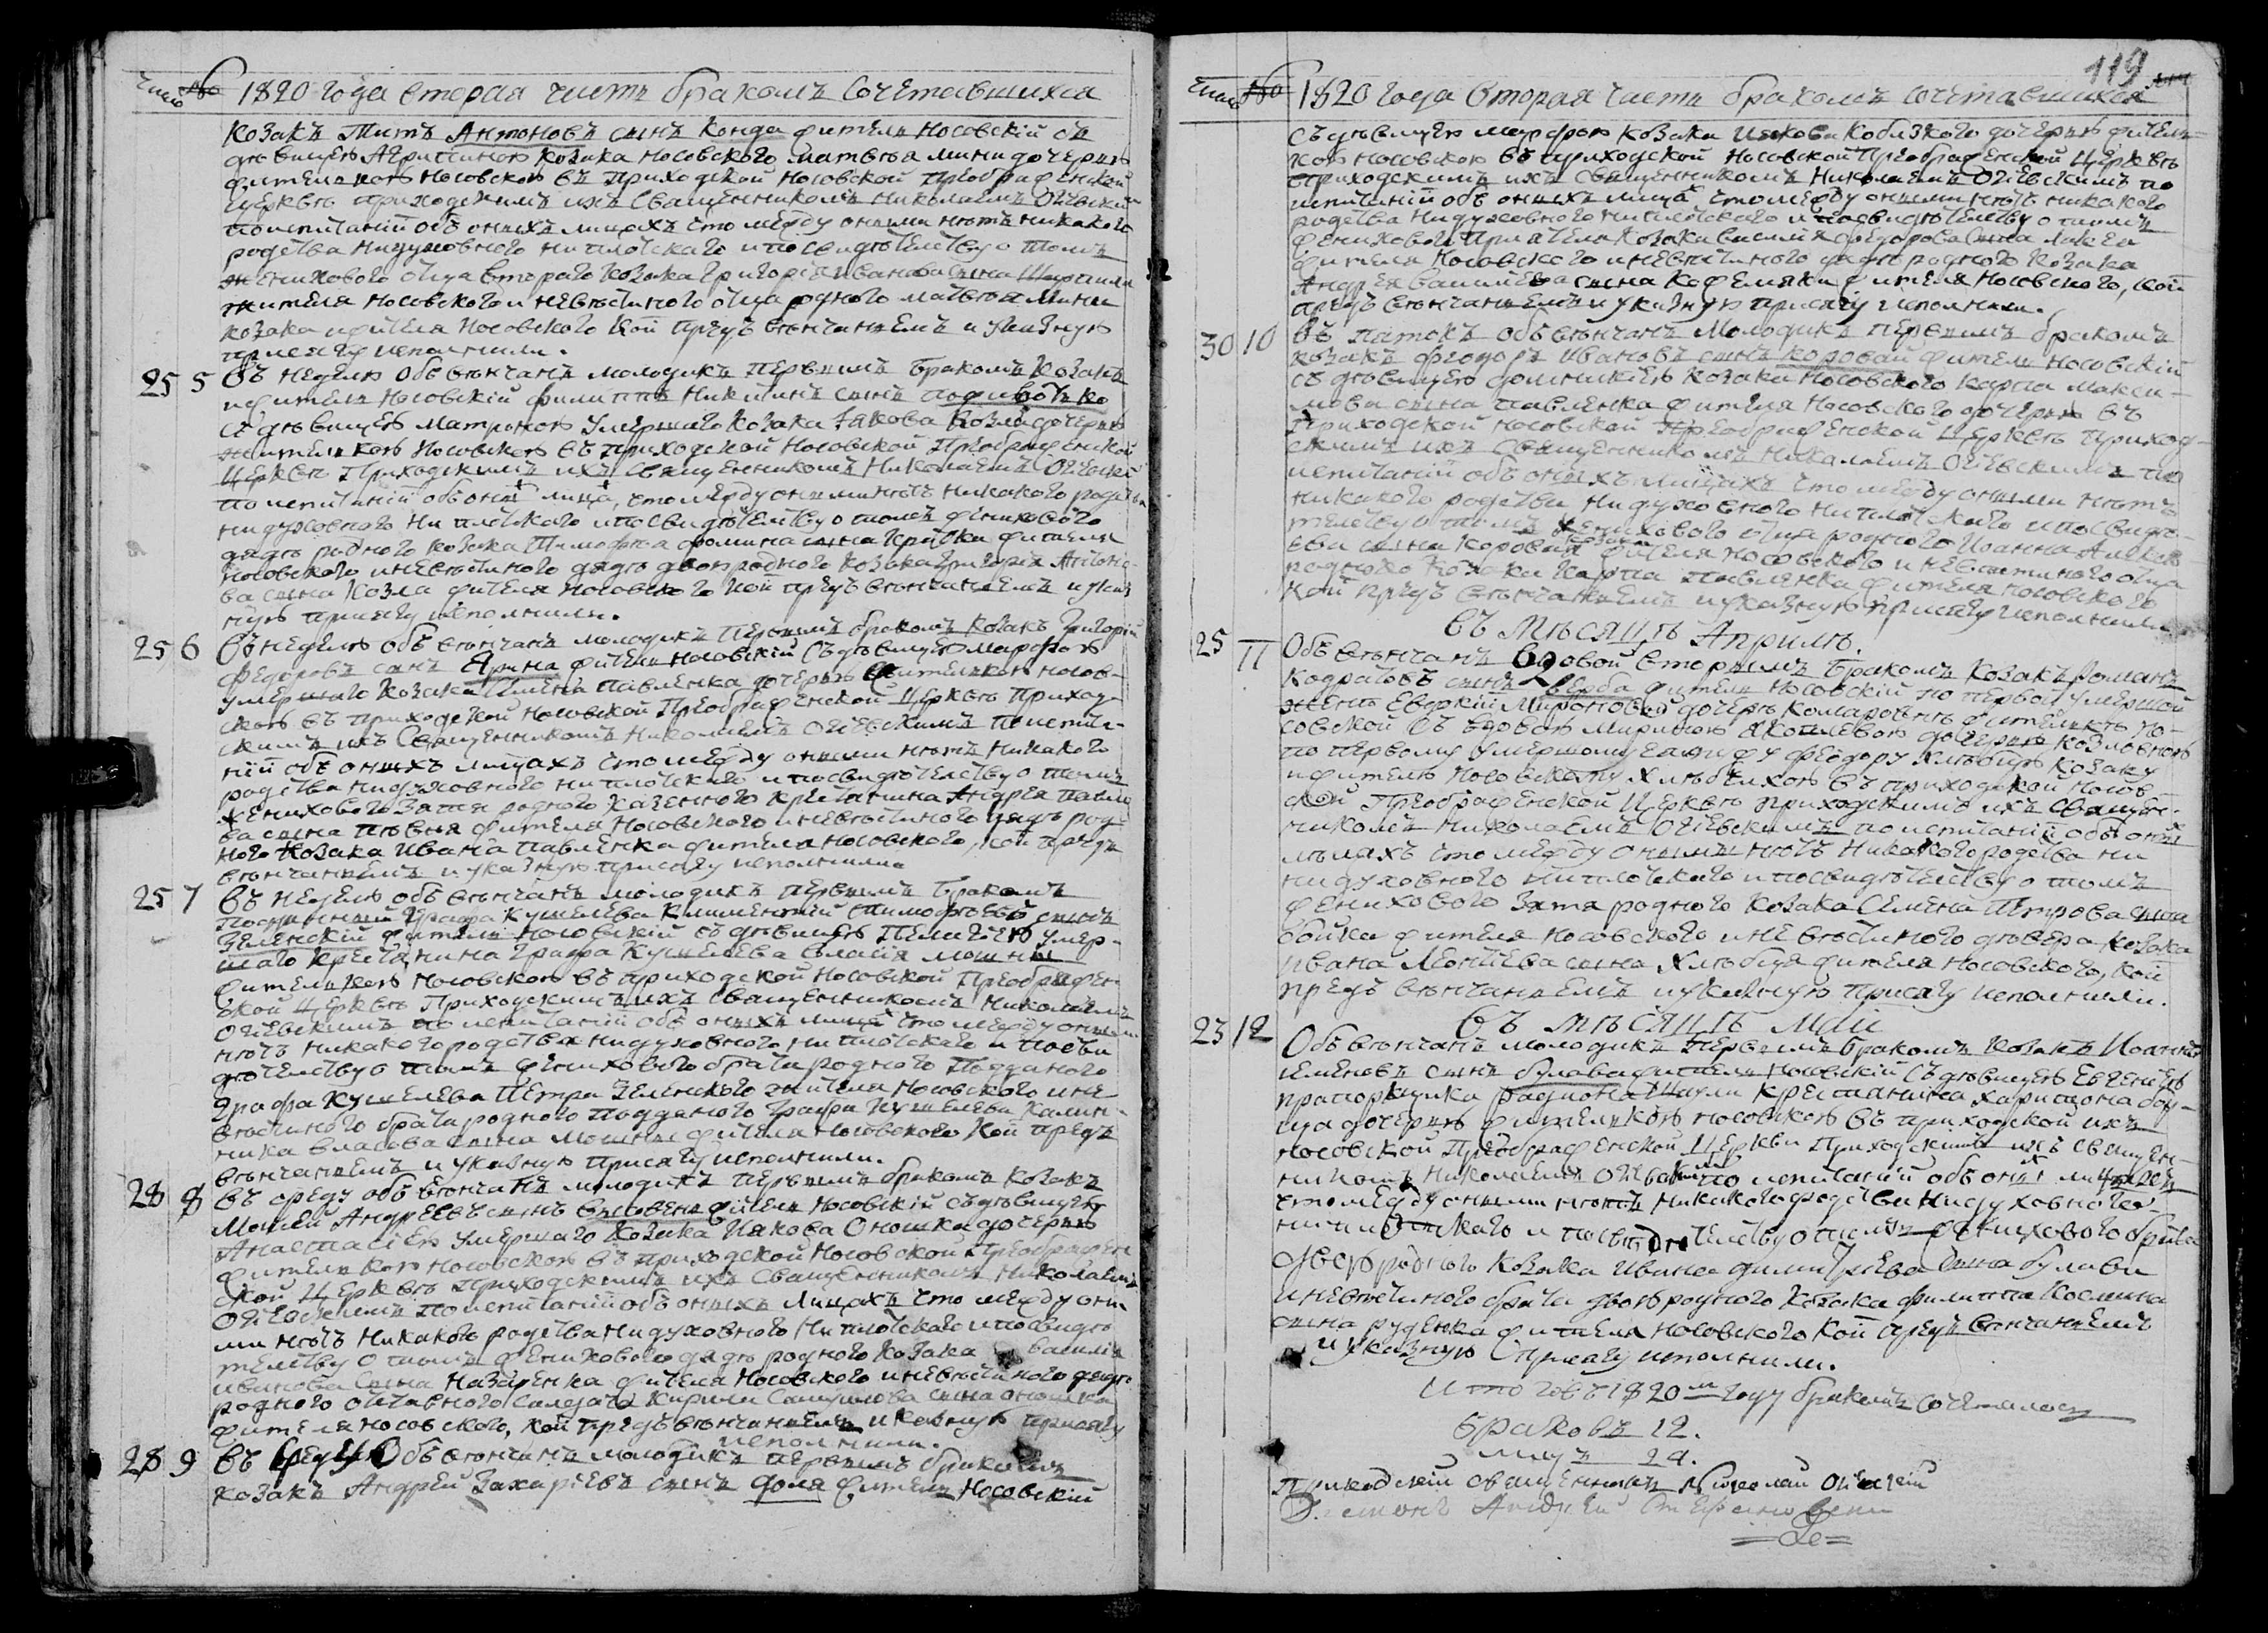 Число № 1820 года вторая часть бракомъ Сочетавшихся
Козакъ Титъ Антоновъ сынъ Конда житель Носовскій съ
дѣвицею Агрипиною козака Носовского Матвѣя Мини дочерью
жителькою Носовскою въ приходской Носовской Преображенской
Церквѣ приходскимъ ихъ Священникомъ Николаемъ Огіевскимъ
по испитаніи объ оныхъ лицахъ что между оными нѣтъ никакого
родства ни духовного ни плотского и по свидѣтелству о томъ
женихового отца второго козака Григорія Иванова сына
жителя Носовского и невѣстиного отца родного Матвѣя Мини
козака и жителя Носовского кои предъ вѣнчаніемъ и указную
присягу исполнили.
25 5 Въ неделю обвѣнчанъ молодикъ первымъ бракомъ козакъ
и житель Носовскій Филиппъ Никитинъ сынъ
съ дѣвицею Матроною умершаго козака Іакова Козла дочерью
жителькою Носовскою въ приходской Носовской Преображенской
Церквѣ Приходскимъ ихъ Священникомъ Николаемъ Огіевским
по испитаніи объ оных лицах, что между оными нѣтъ никакого родства
ни духовного ни плотского и по свидѣтелству о томъ женихового
дядѣ родного козака Тимофея Фомина сына жителя
Носовского и невѣстиного дядѣ двоюродного козака Григорія Антоно-
ва сына Козла жителя Носовского кои предъ вѣнчаніемъ и указ
ную присягу исполнили.
25 6 Въ неделю обвѣнчанъ молодикъ первымъ бракомъ козакъ Григорій
Федоровъ сынъ Ярина житель Носовскій съ дѣвицею Марфою
умершаго козака Семена Павленка дочерью жителькою Носов-
скою въ приходской Носовской Преображенской Церквѣ Приход-
скимъ ихъ Священникомъ Николаемъ Огіевскимъ по испита-
ніи объ оныхъ лицахъ что между оными нѣтъ никакого
родства ни духовного ни плотского и по свидѣтелству о томъ
женихового зятя родного казенного крестянина Андрея Павло
ва сына жителя Носовского и невѣстиного дядѣ род-
ного козака Ивана Павленка жителя Носовского, кои предъ
вѣнчаніемъ и указную присягу исполнили.
25 7 Въ неделю обвѣнчанъ молодикъ первымъ бракомъ
Подданный Графа Кушелева Климентій Тимофѣевъ сынъ
Зеленскій житель Носовскій съ дѣвицею Пелагіею умер-
шаго крестянина Графа Кушелева Власія Мошны
жителькою Носовскою въ приходской Носовской Преображен-
ской Церквѣ Приходскимъ ихъ Священникомъ Николаемъ
Огіевскимъ по испитаніи объ оныхъ лицах что между оными
нѣтъ никакого родства ни духовного ни плотского и по сви
дѣтелству о томъ женихового брата родного Подданого
Графа Кушелева Петра Зеленского жителя Носовского и не
вѣстиного брата родного подданого Графа Кушелева Калин-
ника Власова сына Мошны жителя Носовского кои предъ
вѣнчаніемъ и указную присягу исполнили.
28 8 Въ среду обвѣнчанъ молодикъ первымъ бракомъ козакъ
Мойсей Андреевъ сынъ житель Носовскій съ дѣвицею
Анастасіею умершаго козака Иакова Оношка дочерью
жителькою Носовскою въ приходской Носовской Преображен
ской Церквѣ Приходскимъ ихъ Священникомъ Николаемъ
Огіевскимъ по испитаніи объ оныхъ лицахъ что между оны
ми нѣтъ никакого родства ни духовного ни плотского и по свидѣ
телству о томъ женихового дядѣ родного козака Василія
Иванова сына Назаренка жителя Носовского и невѣстиного дядѣ
родного отставного салдата Кирила сына Оношка
жителя Носовского, кои предъ вѣнчаніемъ и указную присягу
исполнили.
28 9 Въ среду обвѣнчанъ молодикъ первымъ бракомъ
козакъ Андрей Захаріевъ сынъ житель Носовскій
119
Число № 1820 года вторая часть бракомъ сочетавшихся
съ дѣвицею Марфою козака Иякова Кобизкого дочерью житель-
кою Носовскою въ приходской Носовской Преображенской Церквѣ
Приходскимъ ихъ Священникомъ Николаемъ Огіевскимъ по
испитаніи объ оныхъ лицах, что между оными нѣтъ никакого
родства ни духовного ни плотского и по свидѣтелству о томъ
женихового Приятеля козака Василія Федорова сына
жителя Носовского и невѣстиного дядѣ родного козака
Андрея сына Кожемяки жителя Носовского, кои
предъ вѣнчаніемъ и указную присягу исполнили.
30 10 Въ пятокъ обвѣнчанъ молодикъ первымъ бракомъ
козакъ Феодоръ Ивановъ сынъ Коровай житель Носовскій
съ дѣвицею Домникіею козака Носовского Карпа Макси-
мова сына Павленка жителя Носовского дочерью въ
Приходской Носовской Преображенской Церквѣ Приход-
скимъ ихъ Священникомъ Николаемъ Огіевскимъ по
испитаніи объ оныхъ лицахъ что между оными нѣтъ
никакого родства ни духовного ни плотского и по свидѣ-
телству о томъ женихового отца родного Иоанна
сына Коровая жителя Носовского и невѣстиного отца
родного козака Карпа Павленка жителя Носовского
кои предъ вѣнчаніемъ и указную присягу исполнили
Въ Мѣсяцѣ Априлѣ.
25 11 Обвѣнчанъ вдовой вторымъ бракомъ козакъ Романъ
Кодратовъ сынъ Верба житель Носовскій по первой умершой
женѣ Евдокіи Мироновой дочерѣ жителькѣ Но-
совской съ вдовою Мариною дочерью Козловною
по первому умершому ея мужу Феодору Хлѣбцѣ козаку
и жителю Носовскому въ приходской Носов
ской Преображенской Церквѣ приходскимъ ихъ Священ-
никомъ Николаемъ Огіевскимъ по испитаніи объ оных
лицахъ что между оными нѣтъ никакого родства ни
ни духовного ни плотского и по свидѣтелству о томъ
женихового зятя родного козака Семена Петрова сына
Бойка жителя Носовского и невѣстиного дѣвера козака
Ивана Леонтіева сына Хлѣбця жителя Носовского, кои
предъ вѣнчаніемъ и указную присягу исполнили.
Въ Мѣсяцѣ Маіи
23 12 Обвѣнчанъ молодикъ первымъ бракомъ козакъ Иоаннъ
Семеновъ сынъ Булава житель Носовскій съ дѣвицею Евгеніею
прапорщика Радиона крестянина Харитона
дочерью жителькою Носовскою въ приходской ихъ
Носовской Преображенской Церкви Приходскимъ ихъ Священ-
никомъ Николаемъ Огіевским по испитаніи объ оных лицахъ
что между оными нѣтъ никакого родства ни духовного
ни плотского и по свидѣтелству о томъ женихового брата
двоюродного козака Ивана Димитріева сына Булавы
и невѣстиного брата двоюродного козака Филиппа Космина
сына Руденка жителя Носовского кои предъ вѣнчаніемъ
и указную присягу исполнили.
Итого въ 1820м году бракомъ сочеталось
Браковъ 12.
лицъ 24.
Приходскій священникъ Николай Огіевскій
Андрей Стефановичъ